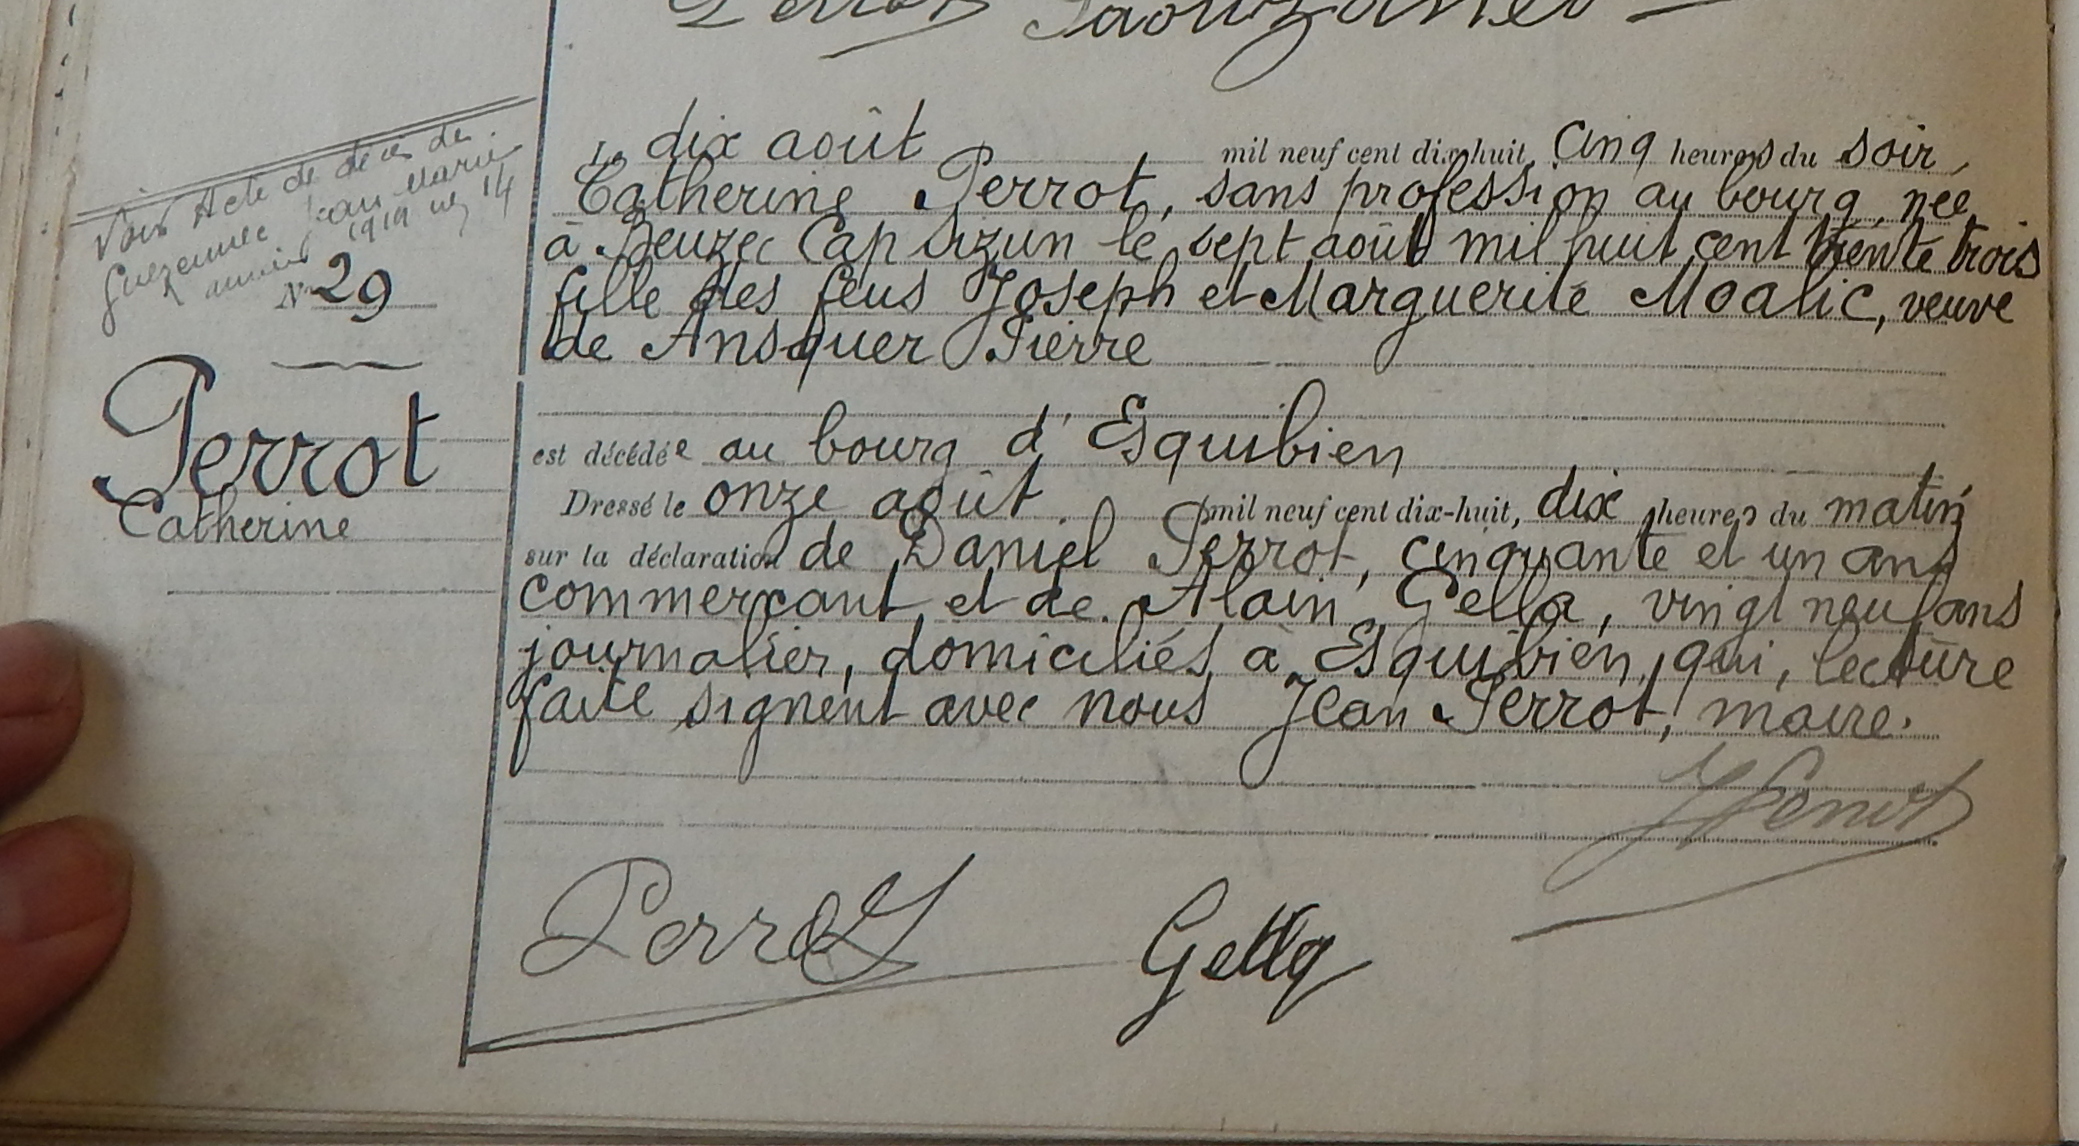 Perrot Paouzanet
Voir Acte de décès de
Guezennec Jean Marie
année 1919 No 14
No 29
Perrot
Catherine
Le dix août mil neuf cent dix-huit, cinq heures du soir,
Catherine Perrot, sans profession au bourg, née
à Beuzec Cap Sizun le sept août mil huit cent trente trois
fille des feus Joseph et Marguerite Moalic, veuve
de Ansquer Pierre
est décédée au bourg d'Esquibien
Dressé le onze août mil neuf cent dix-huit, dix heures du matin
sur la déclaration de Daniel Perrot, cinquante et un ans
commerçant et de Alain Gella, vingt neuf ans
journalier, domiciliés à Esquibien, qui, lecture
faite signent avec nous Jean Perrot, maire.
JPerrot
Perrot Gella